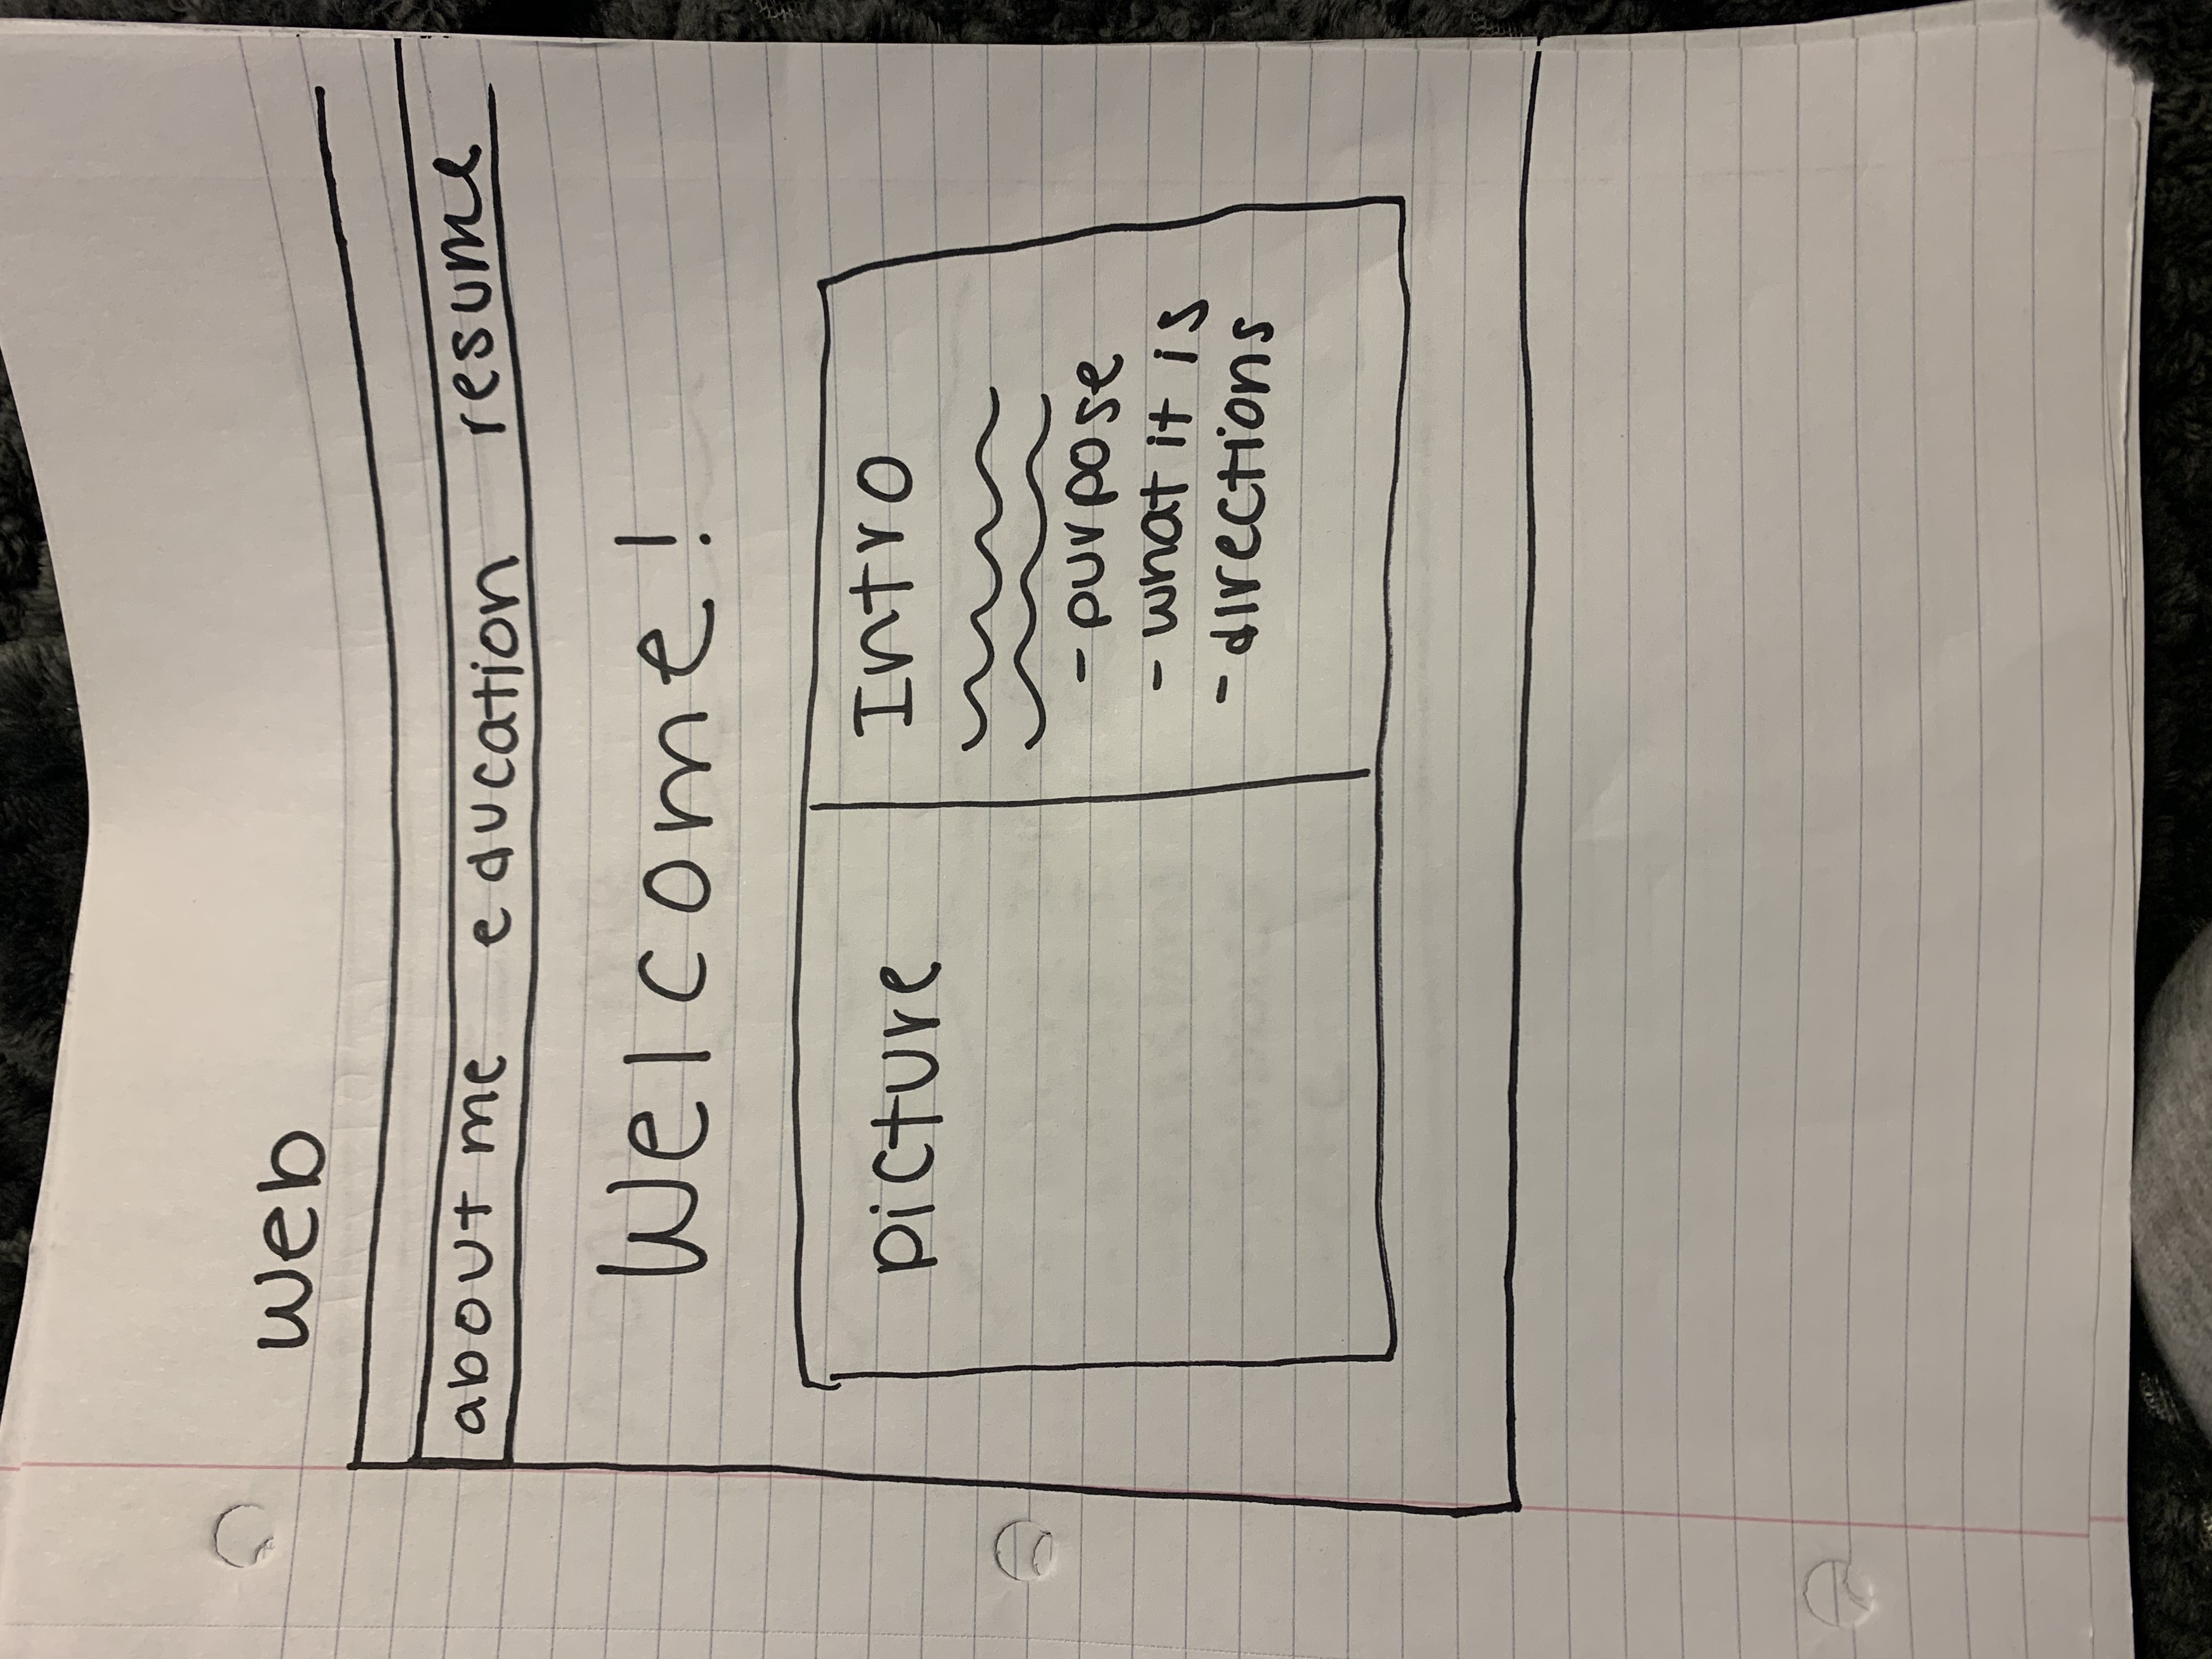 web
about me education resume
Welcome!
picture
Intro
- purpose
- what it is
- directions